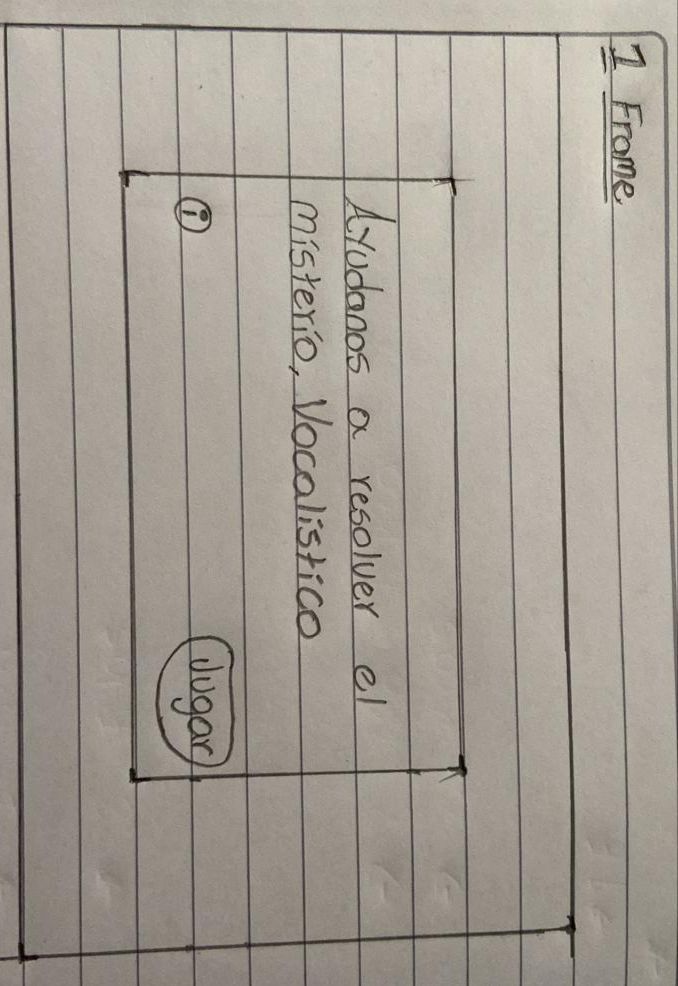 1 Frame
Ayudanos a resolver el
misterio, Vocalistico
i
Jugar